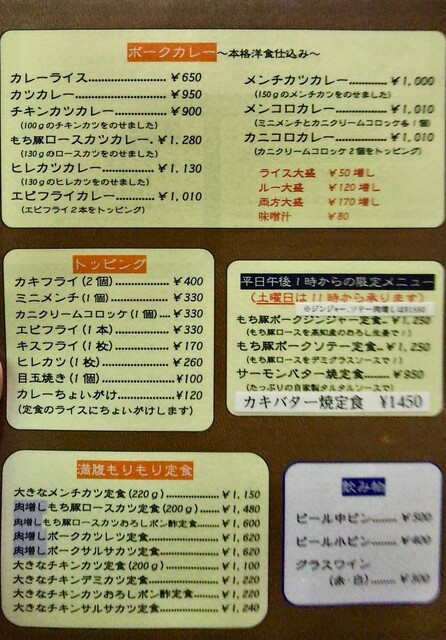 ポークカレー～本格洋食仕込み～
カレーライス………………¥650
カツカレー………………¥950
チキンカツカレー…………¥900
(100gのチキンカツをのせました)
もち豚ロースカツカレー.¥1.280
(130gのロースカツをのせました)
ヒレカツカレー……………¥1.130
(130gのヒレカツをのせました)
エビフライカレー…………¥1,010
(エビフライ2本をトッピング)
メンチカツカレー…………¥1,000
(150gのメンチカツをのせました)
メンコロカレー……………¥1,010
(ミニメンチとカニクリームコロッケ各1個)
カニコロカレー……………¥1,010
(カニクリームコロッケ2個をトッピング)
ライス大盛 ¥50増し
ルー大盛 ¥120増し
両方大盛 ¥170増し
味噌汁 ¥80
トッピング
カキフライ(2個)……………¥400
ミニメンチ(1個)……………¥330
カニクリームコロッケ(1個)…¥330
エビフライ(1本)……………¥330
キスフライ(1枚)……………¥170
ヒレカツ(1枚)………………¥260
目玉焼き(1個)………………¥100
カレーちょいがけ……………¥120
(定食のライスにちょいがけします)
平日午後1時からの限定メニュー
(土曜日は11時から承ります)
もち豚ポークジンジャー定食..¥1,250
もち豚ポークソテー定食..¥1,250
(もち豚ロースをデミグラスソースで)
サーモンバター焼定食………¥950
(たっぷりの自家製タルタルソースで)
カキバター焼定食 ¥1450
満腹もりもり定食
大きなメンチカツ定食(220g)…………¥1,150
肉増しもち豚ロースカツ定食(200g)……¥1,480
肉増しもち豚ロースカツおろしポン酢定食…¥1,600
肉増しポークカツレツ定食………………¥1,620
肉増しポークサルサカツ定食……………¥1,620
大きなチキンカツ定食(200g)…………¥1,100
大きなチキンデミカツ定食………………¥1,220
大きなチキンカツおろしポン酢定食………¥1,220
大きなチキンサルサカツ定食……………¥1,240
飲み物
ビール中ビン…………¥500
ビール小ビン…………¥400
グラスワイン
(赤・白)………¥300